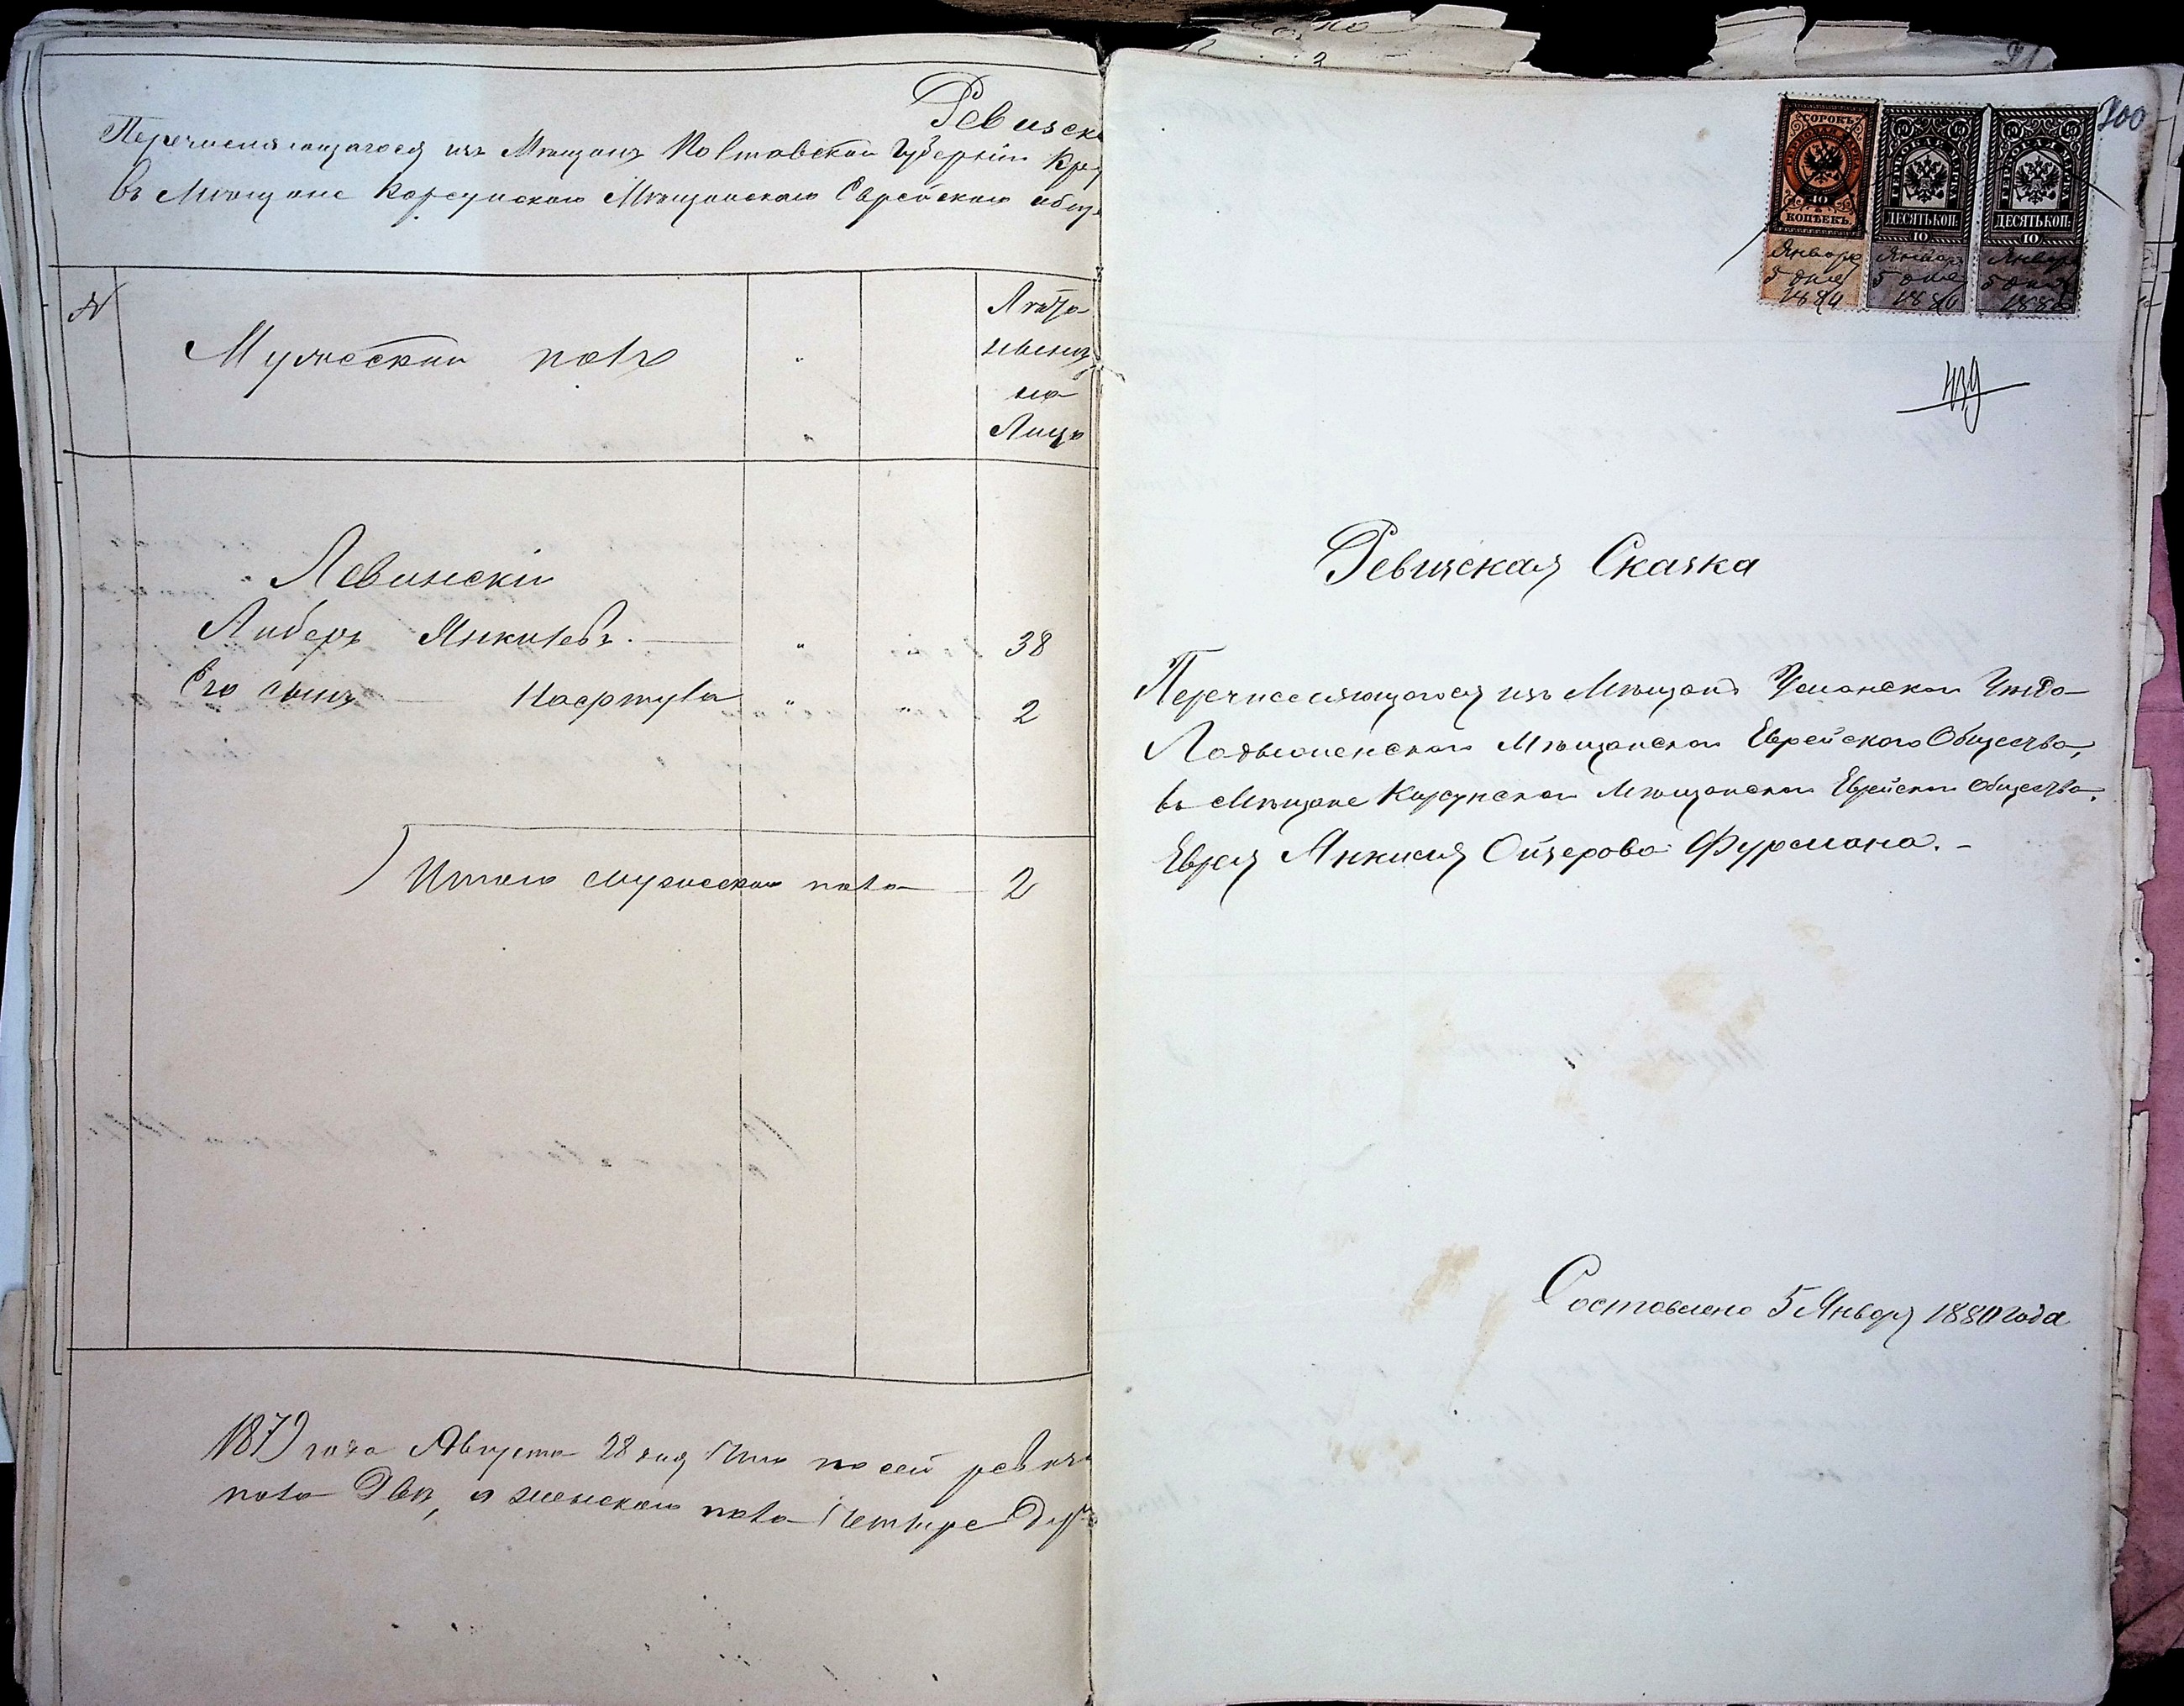 Ревизск
Перечисляющагося изъ Мѣщанъ Полтавской Губерніи Кре
въ Мѣщане Корсунскаго Мѣщанскаго Еврейскаго обще
№
Мужескій полъ
Лѣта
налицо
Левинскій
Либеръ Янкилевъ. 38
Его сынъ 2
Итого мужескаго пола 2
1879 года Августа 28 дня Что по сей ревиз
пола Двѣ, а женскаго пола четыре душ
400
СОРОКЪ
КОПѢЕКЪ.
40
Января
5 дня
1880
ДЕСЯТЬ КОП:
10
Января
5 дня
1880
ДЕСЯТЬ КОП:
10
Января
5 дня
1880
439
Ревизская Сказка
Перечисляющагося изъ Мѣщанъ Уманскаго
Мѣщанскаго Еврейскаго Общества,
въ Мѣщане Корсунскаго Мѣщанскаго Еврейскаго Общества,
Еврея Янкиля Ойзерова Фурмана. -
Составлено 5 Января 1880 года